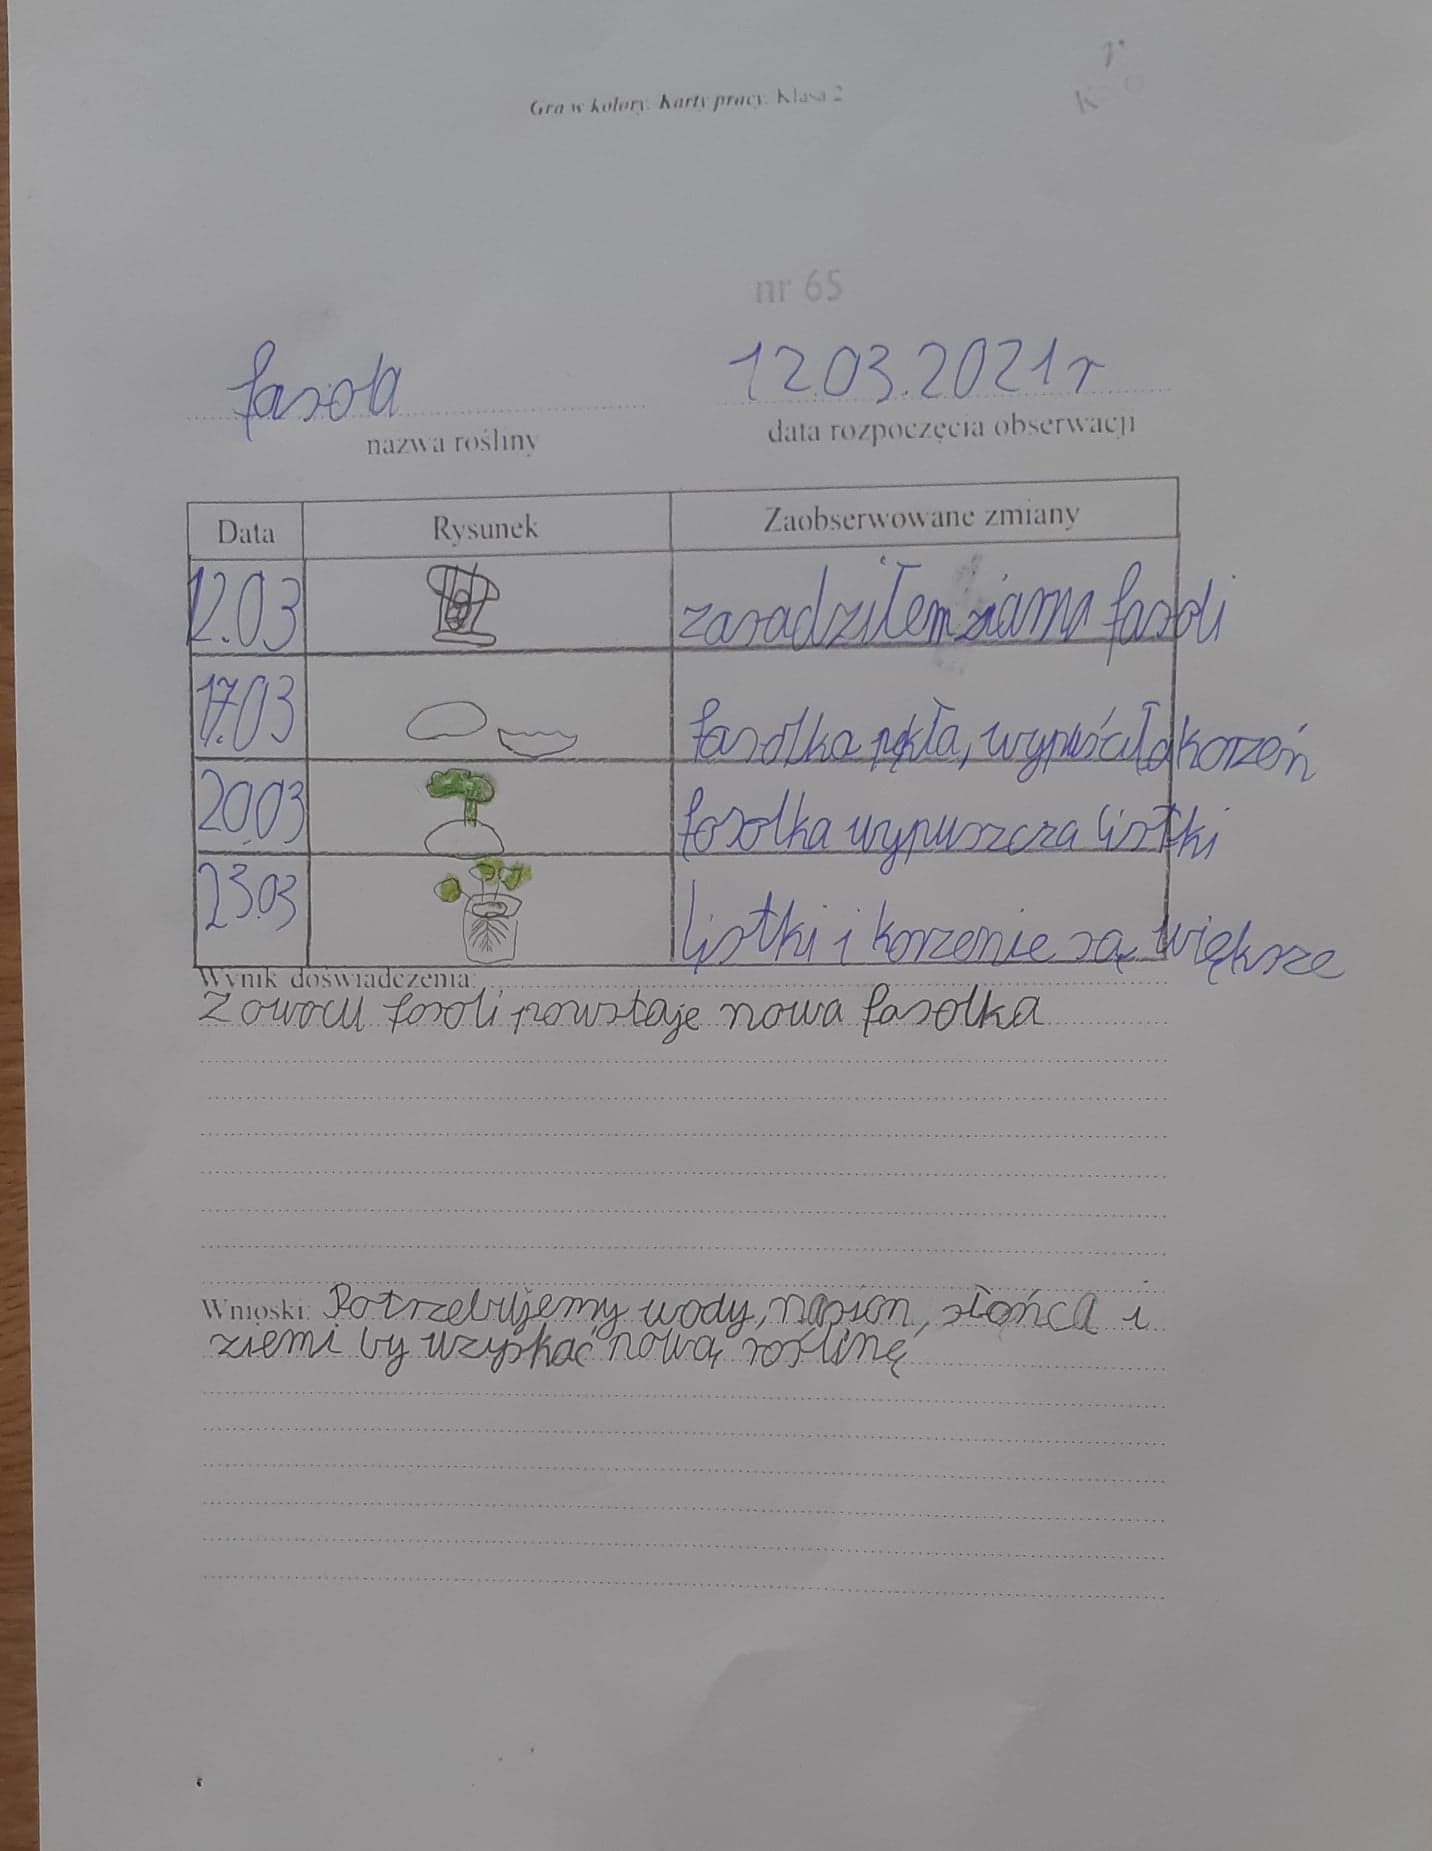 Gra w kolory. Karty pracy. Klasa 2
nr 65
fasola 12.03.2021r
nazwa rośliny data rozpoczęcia obserwacji
Data Rysunek Zaobserwowane zmiany
12.03 zasadziłem ziarna fasoli
17.03 fasolka pękła, wypuściła korzeń
20.03 fasolka wypuszcza listki
23.03 listki i korzenie są większe
Wynik doświadczenia:
Z owocu fasoli powstaje nowa fasolka
Wnioski: Potrzebujemy wody, nasion, słońca i
ziemi by uzyskać nową roślinę